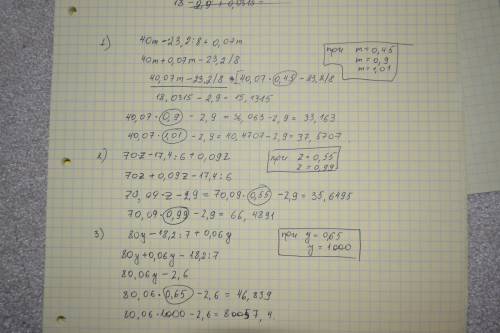 18 - 2,9 + 0,0315 =
1)
40m - 23,2 : 8 + 0,07m
при m = 0,45
m = 0,9
m = 1,01
40m + 0,07m - 23,2/8
40,07m - 23,2/8 = 40,07 · 0,45 - 23,2/8
18,0315 - 2,9 = 15,1315
40,07 · 0,9 - 2,9 = 36,063 - 2,9 = 33,163
40,07 · 1,01 - 2,9 = 40,4707 - 2,9 = 37,5707
2) 70z - 17,4 : 6 + 0,09z
при z = 0,55
z = 0,99
70z + 0,09z - 17,4 : 6
70,09 · z - 2,9 = 70,09 · 0,55 - 2,9 = 35,6495
70,09 · 0,99 - 2,9 = 66,4891
3) 80y - 18,2 : 7 + 0,06y
при y = 0,65
y = 1000
80y + 0,06y - 18,2 : 7
80,06y - 2,6
80,06 · 0,65 - 2,6 = 46,839
80,06 · 1000 - 2,6 = 80057,4